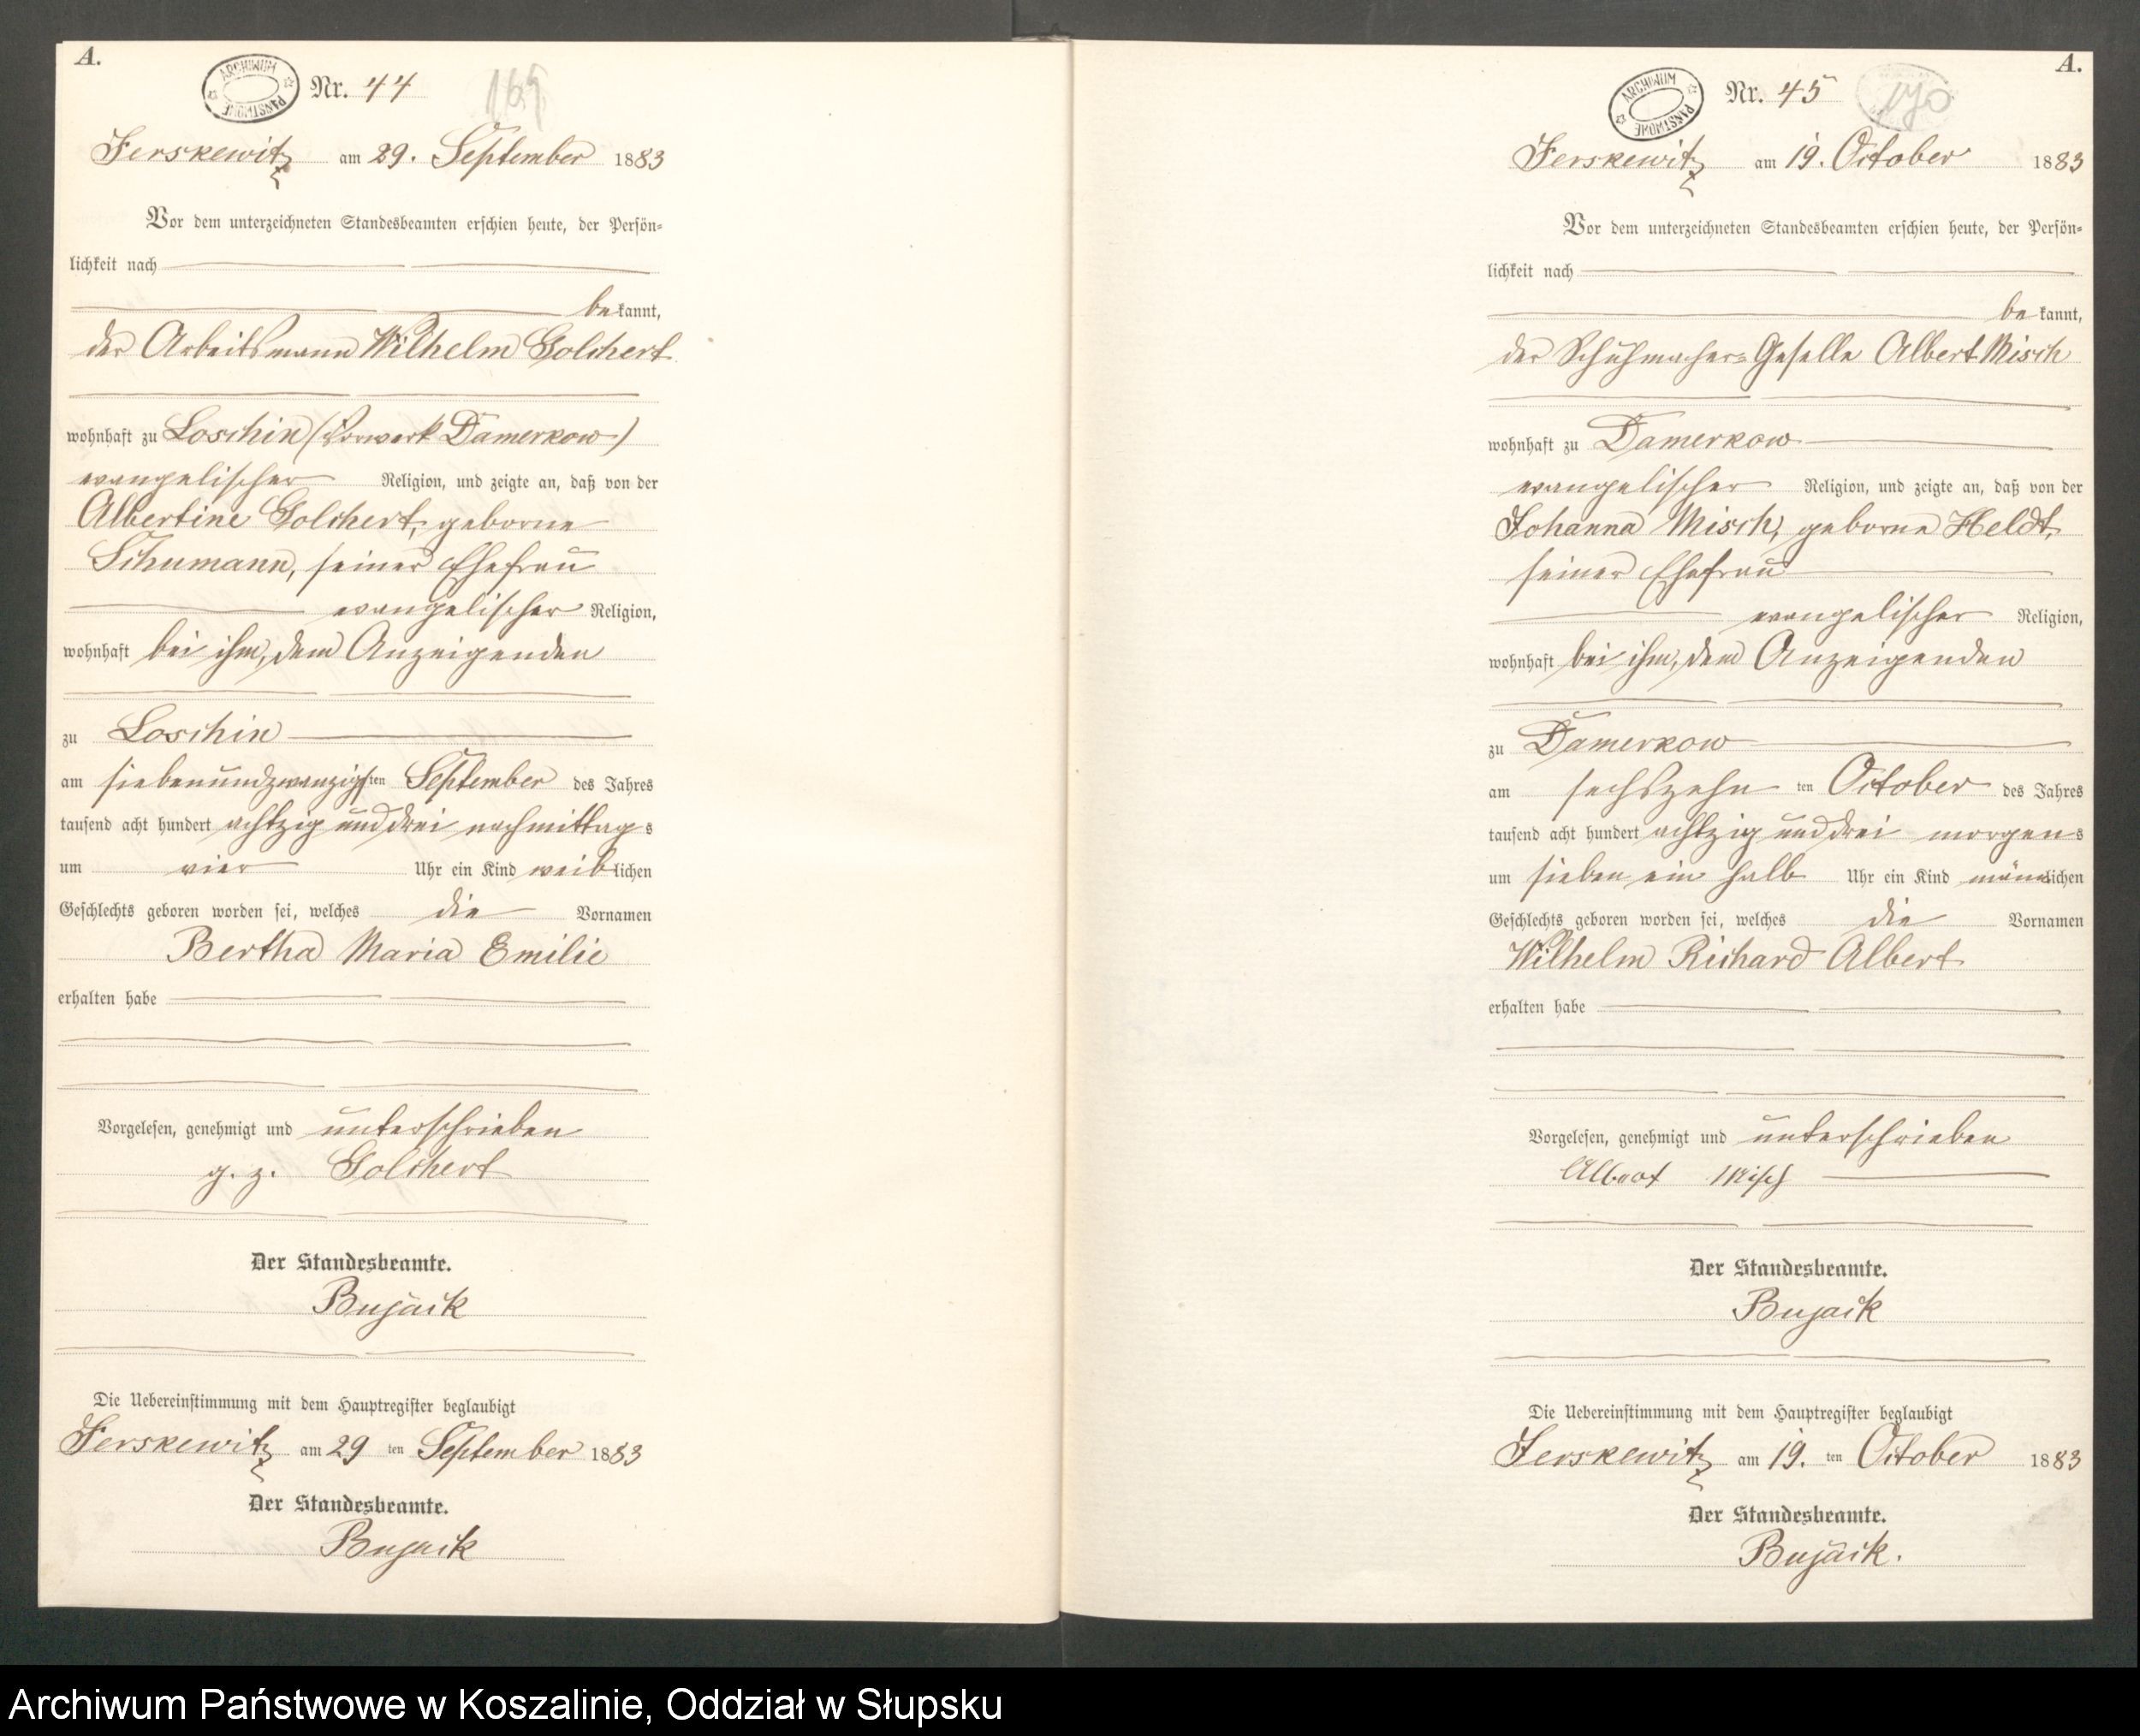 A.
ARCHIWUM PAŃSTWOWE
Nr. 44
169
Jerskewitz am 29. September 1883
Vor dem unterzeichneten Standesbeamten erschien heute, der Persön-
lichkeit nach
bekannt,
der Arbeitsmann Wilhelm Golchert
wohnhaft zu Loschin (Vorwerk Damerkow)
evangelischer Religion, und zeigte an, daß von der
Albertine Golchert, geborne
Schumann, seiner Ehefrau
evangelischer Religion,
wohnhaft bei ihm, dem Anzeigenden
zu Loschin
am siebenundzwanzigsten September des Jahres
tausend acht hundert achtzig und drei nachmittags
um vier Uhr ein Kind weiblichen
Geschlechts geboren worden sei, welches die Vornamen
Bertha Maria Emilie
erhalten habe
Vorgelesen, genehmigt und unterschrieben
g. z. Golchert
Der Standesbeamte.
Bujack
Die Uebereinstimmung mit dem Hauptregister beglaubigt
Jerskewitz am 29 ten September 1883
Der Standesbeamte.
Bujack
A.
ARCHIWUM PAŃSTWOWE
Nr. 45
170
Jerskewitz am 19. October 1883
Vor dem unterzeichneten Standesbeamten erschien heute, der Persön-
lichkeit nach
bekannt,
der Schuhmacher-Geselle Albert Misch
wohnhaft zu Damerkow
evangelischer Religion, und zeigte an, daß von der
Johanna Misch, geborne Heldt,
seiner Ehefrau
evangelischer Religion,
wohnhaft bei ihm, dem Anzeigenden
zu Damerkow
am sechszehn ten October des Jahres
tausend acht hundert achtzig und drei morgens
um sieben ein halb Uhr ein Kind männlichen
Geschlechts geboren worden sei, welches die Vornamen
Wilhelm Richard Albert
erhalten habe
Vorgelesen, genehmigt und unterschrieben
Albert Misch
Der Standesbeamte.
Bujack
Die Uebereinstimmung mit dem Hauptregister beglaubigt
Jerskewitz am 19. ten October 1883
Der Standesbeamte.
Bujack.
Archiwum Państwowe w Koszalinie, Oddział w Słupsku